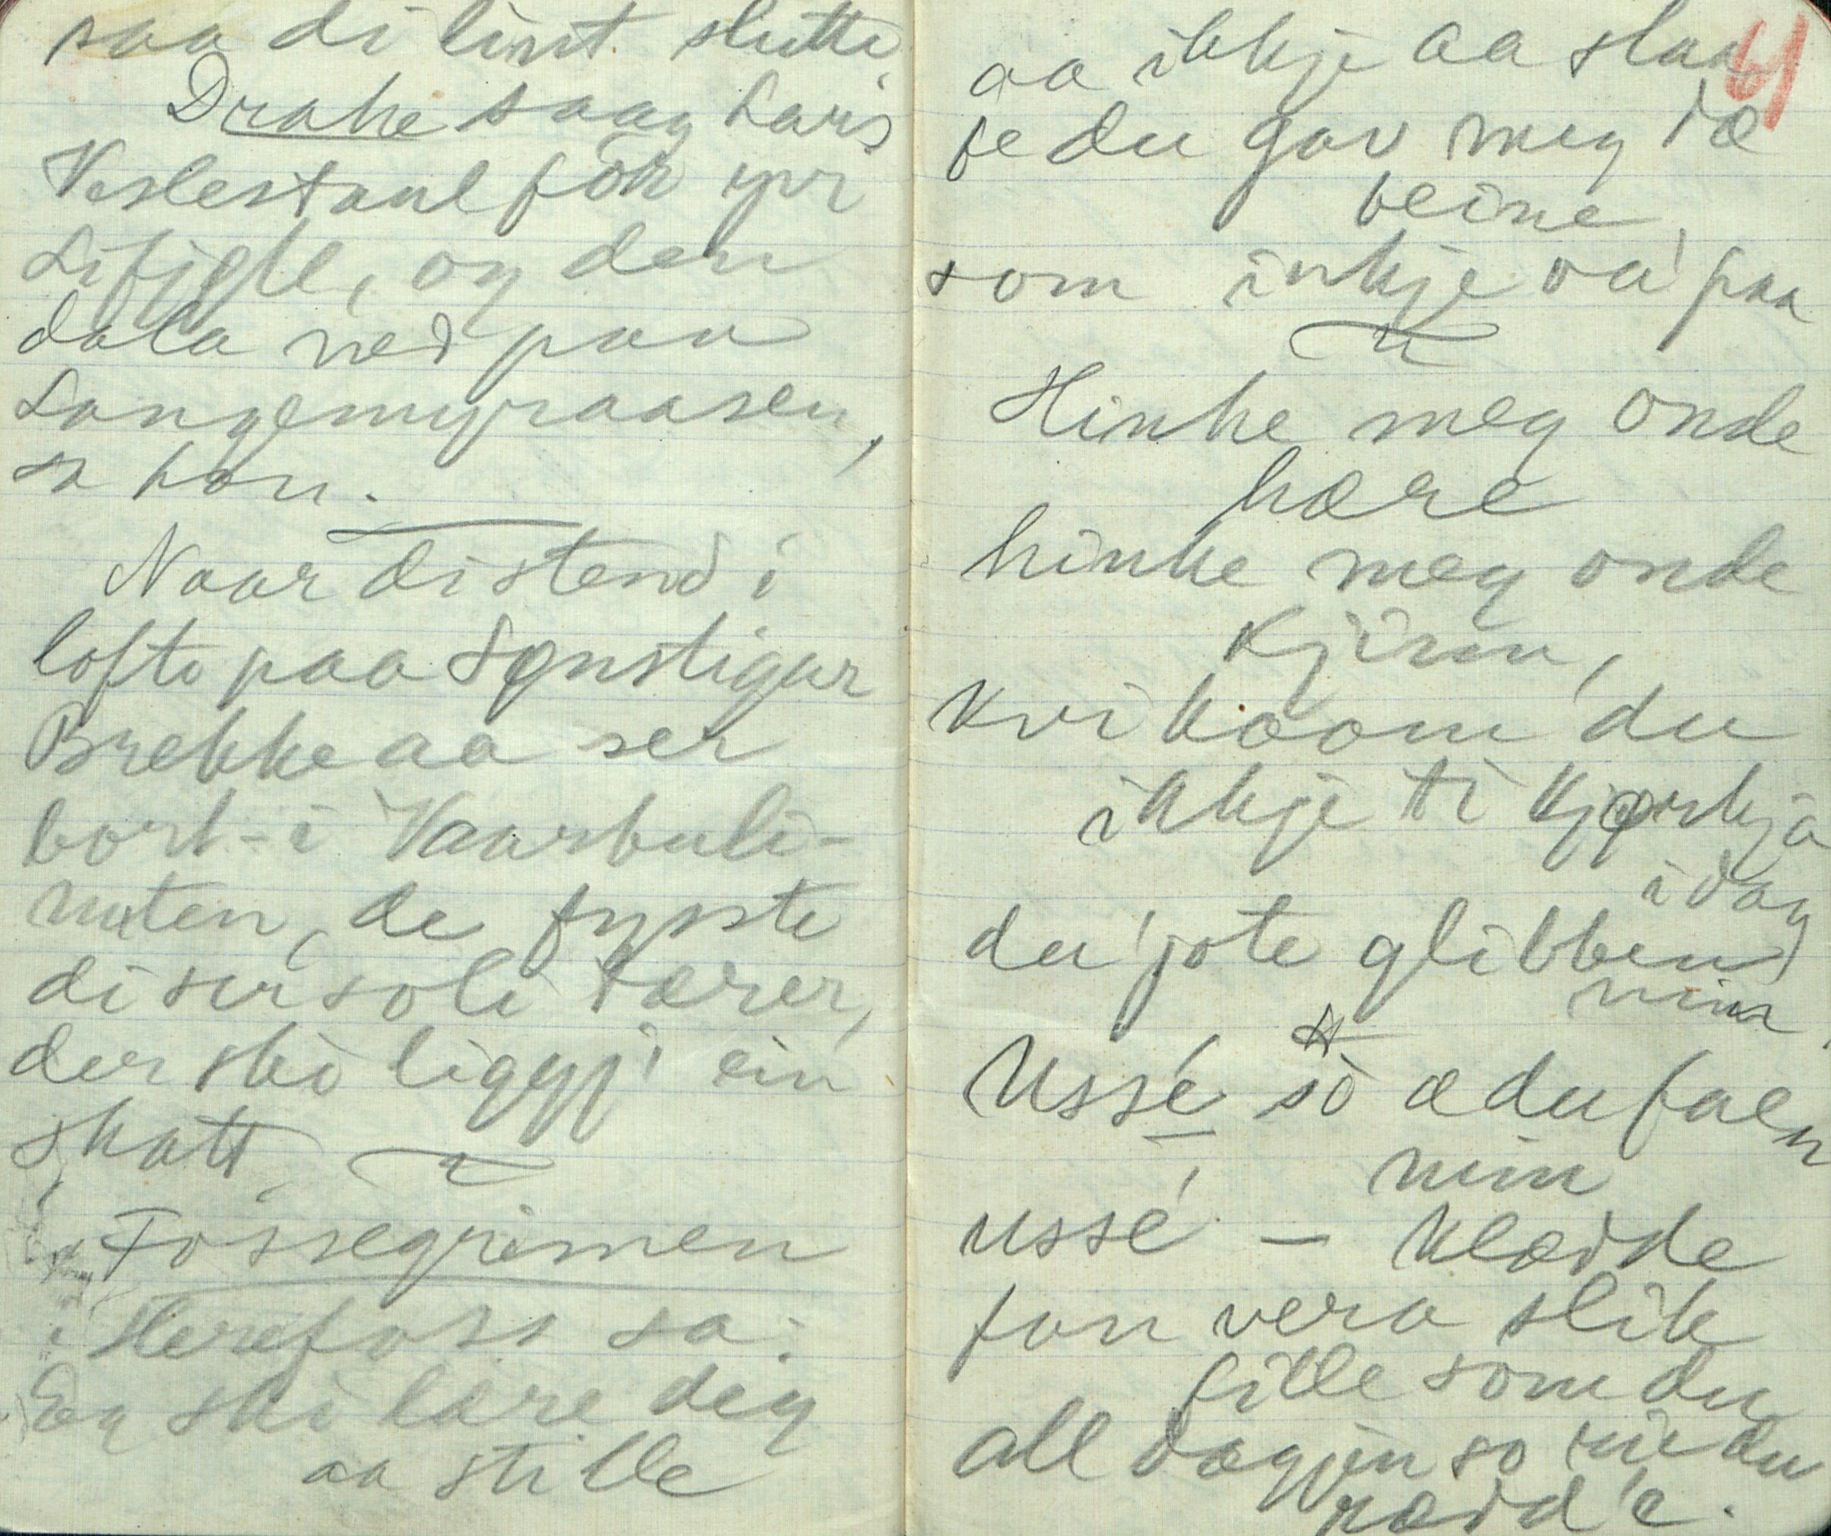 saa di lint slutte
Drake saag Lavrs
Veslestaul fòr yvr
Lifjølle, og den
dala ned paa
Langemyraasen,
sa han.
Naar di stend i
lofte paa Synstigar
Brekke aa ser
bort-i Vaarbuli-
nuten, de fysste
di ser soli tærer,
der ski liggji ein
skatt
Fossegrimen
i Herefoss sa:
Eg ski lære deg
aa stille
aa ikkje aa slaa
fe du gav meg dæ
beine
som inkje va' paa
Hinke meg onde
hære
hinke meg onde
Kjinn,
Kvi kaam du
ikkje ti Kjørkja
idag
du jote glibben
min
Ussé so æ du faen
min
ussé – klædde
fan vera slik
fille som du
all dagjen so rie du
rædd'e.
61